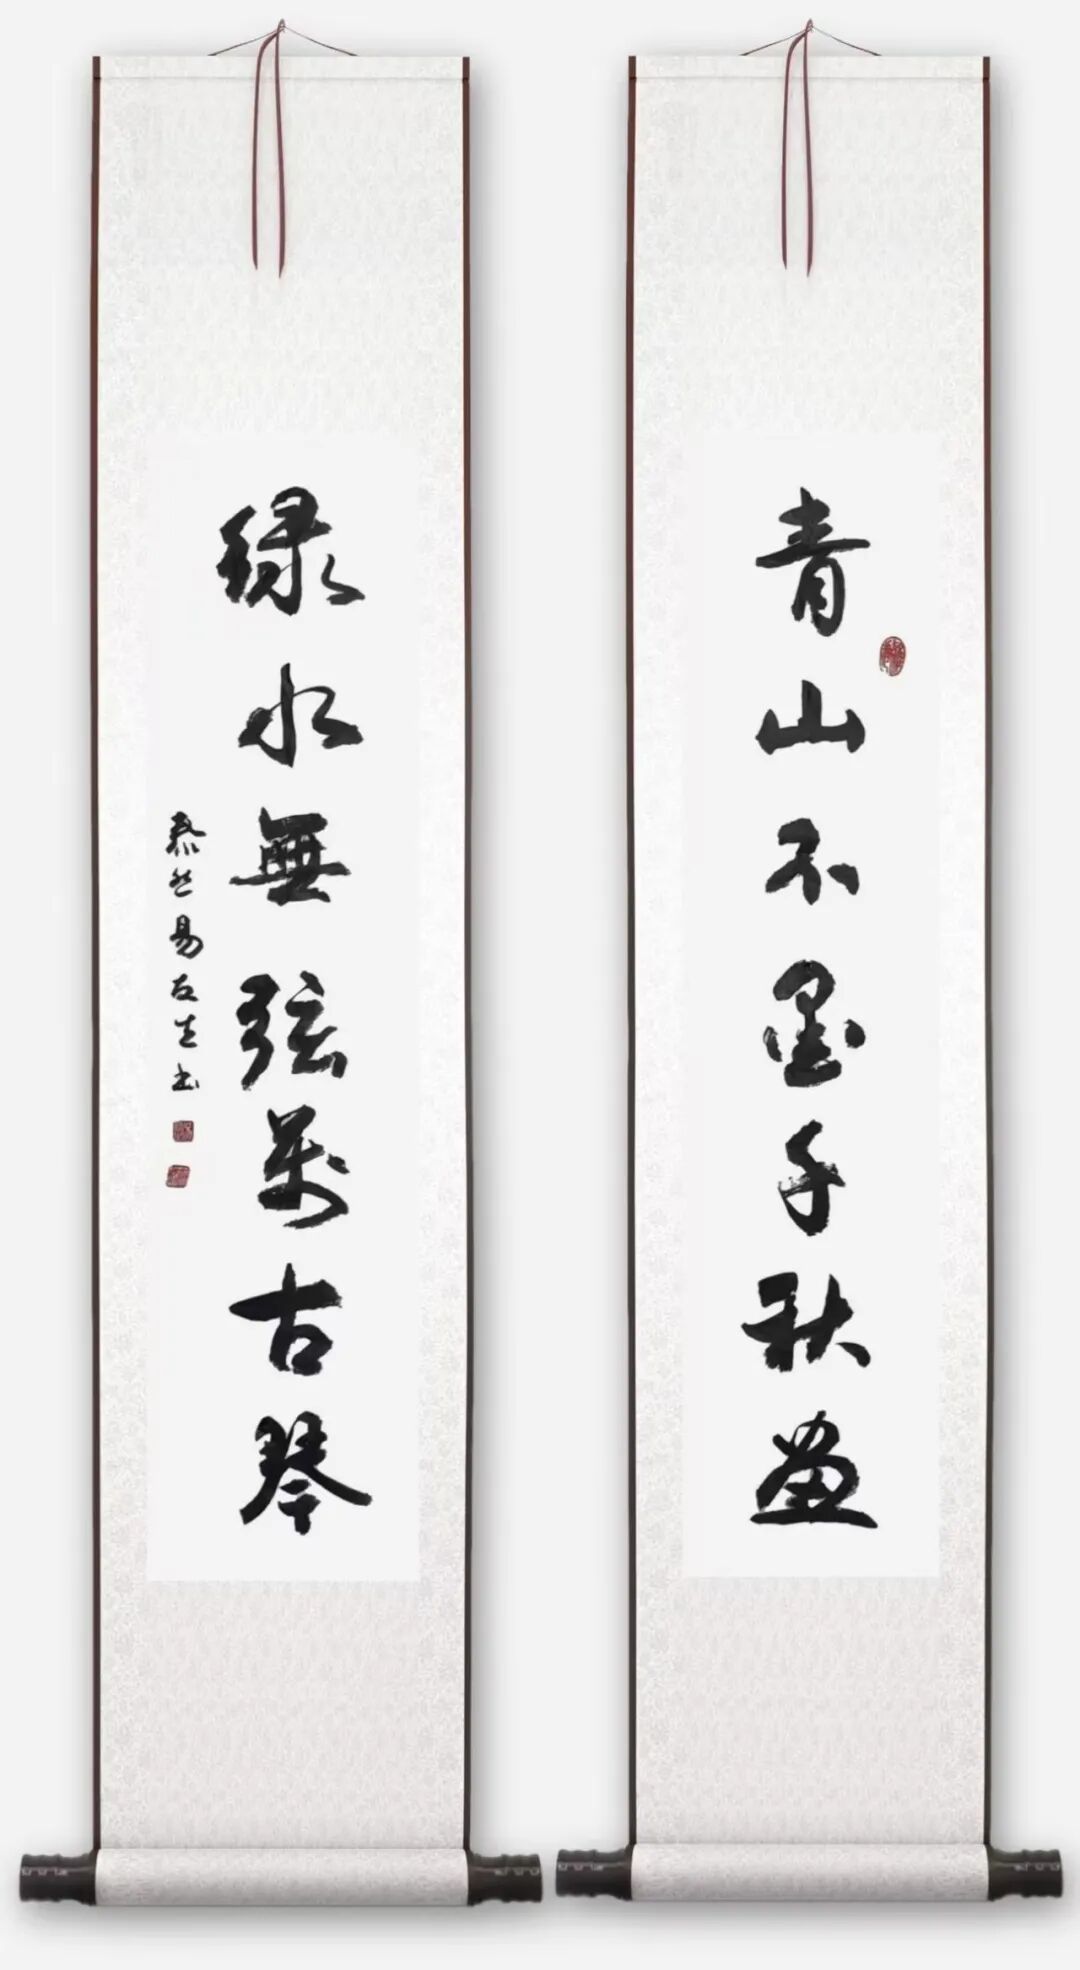 青山不墨千秋画
绿水無弦萬古琴
易友生书